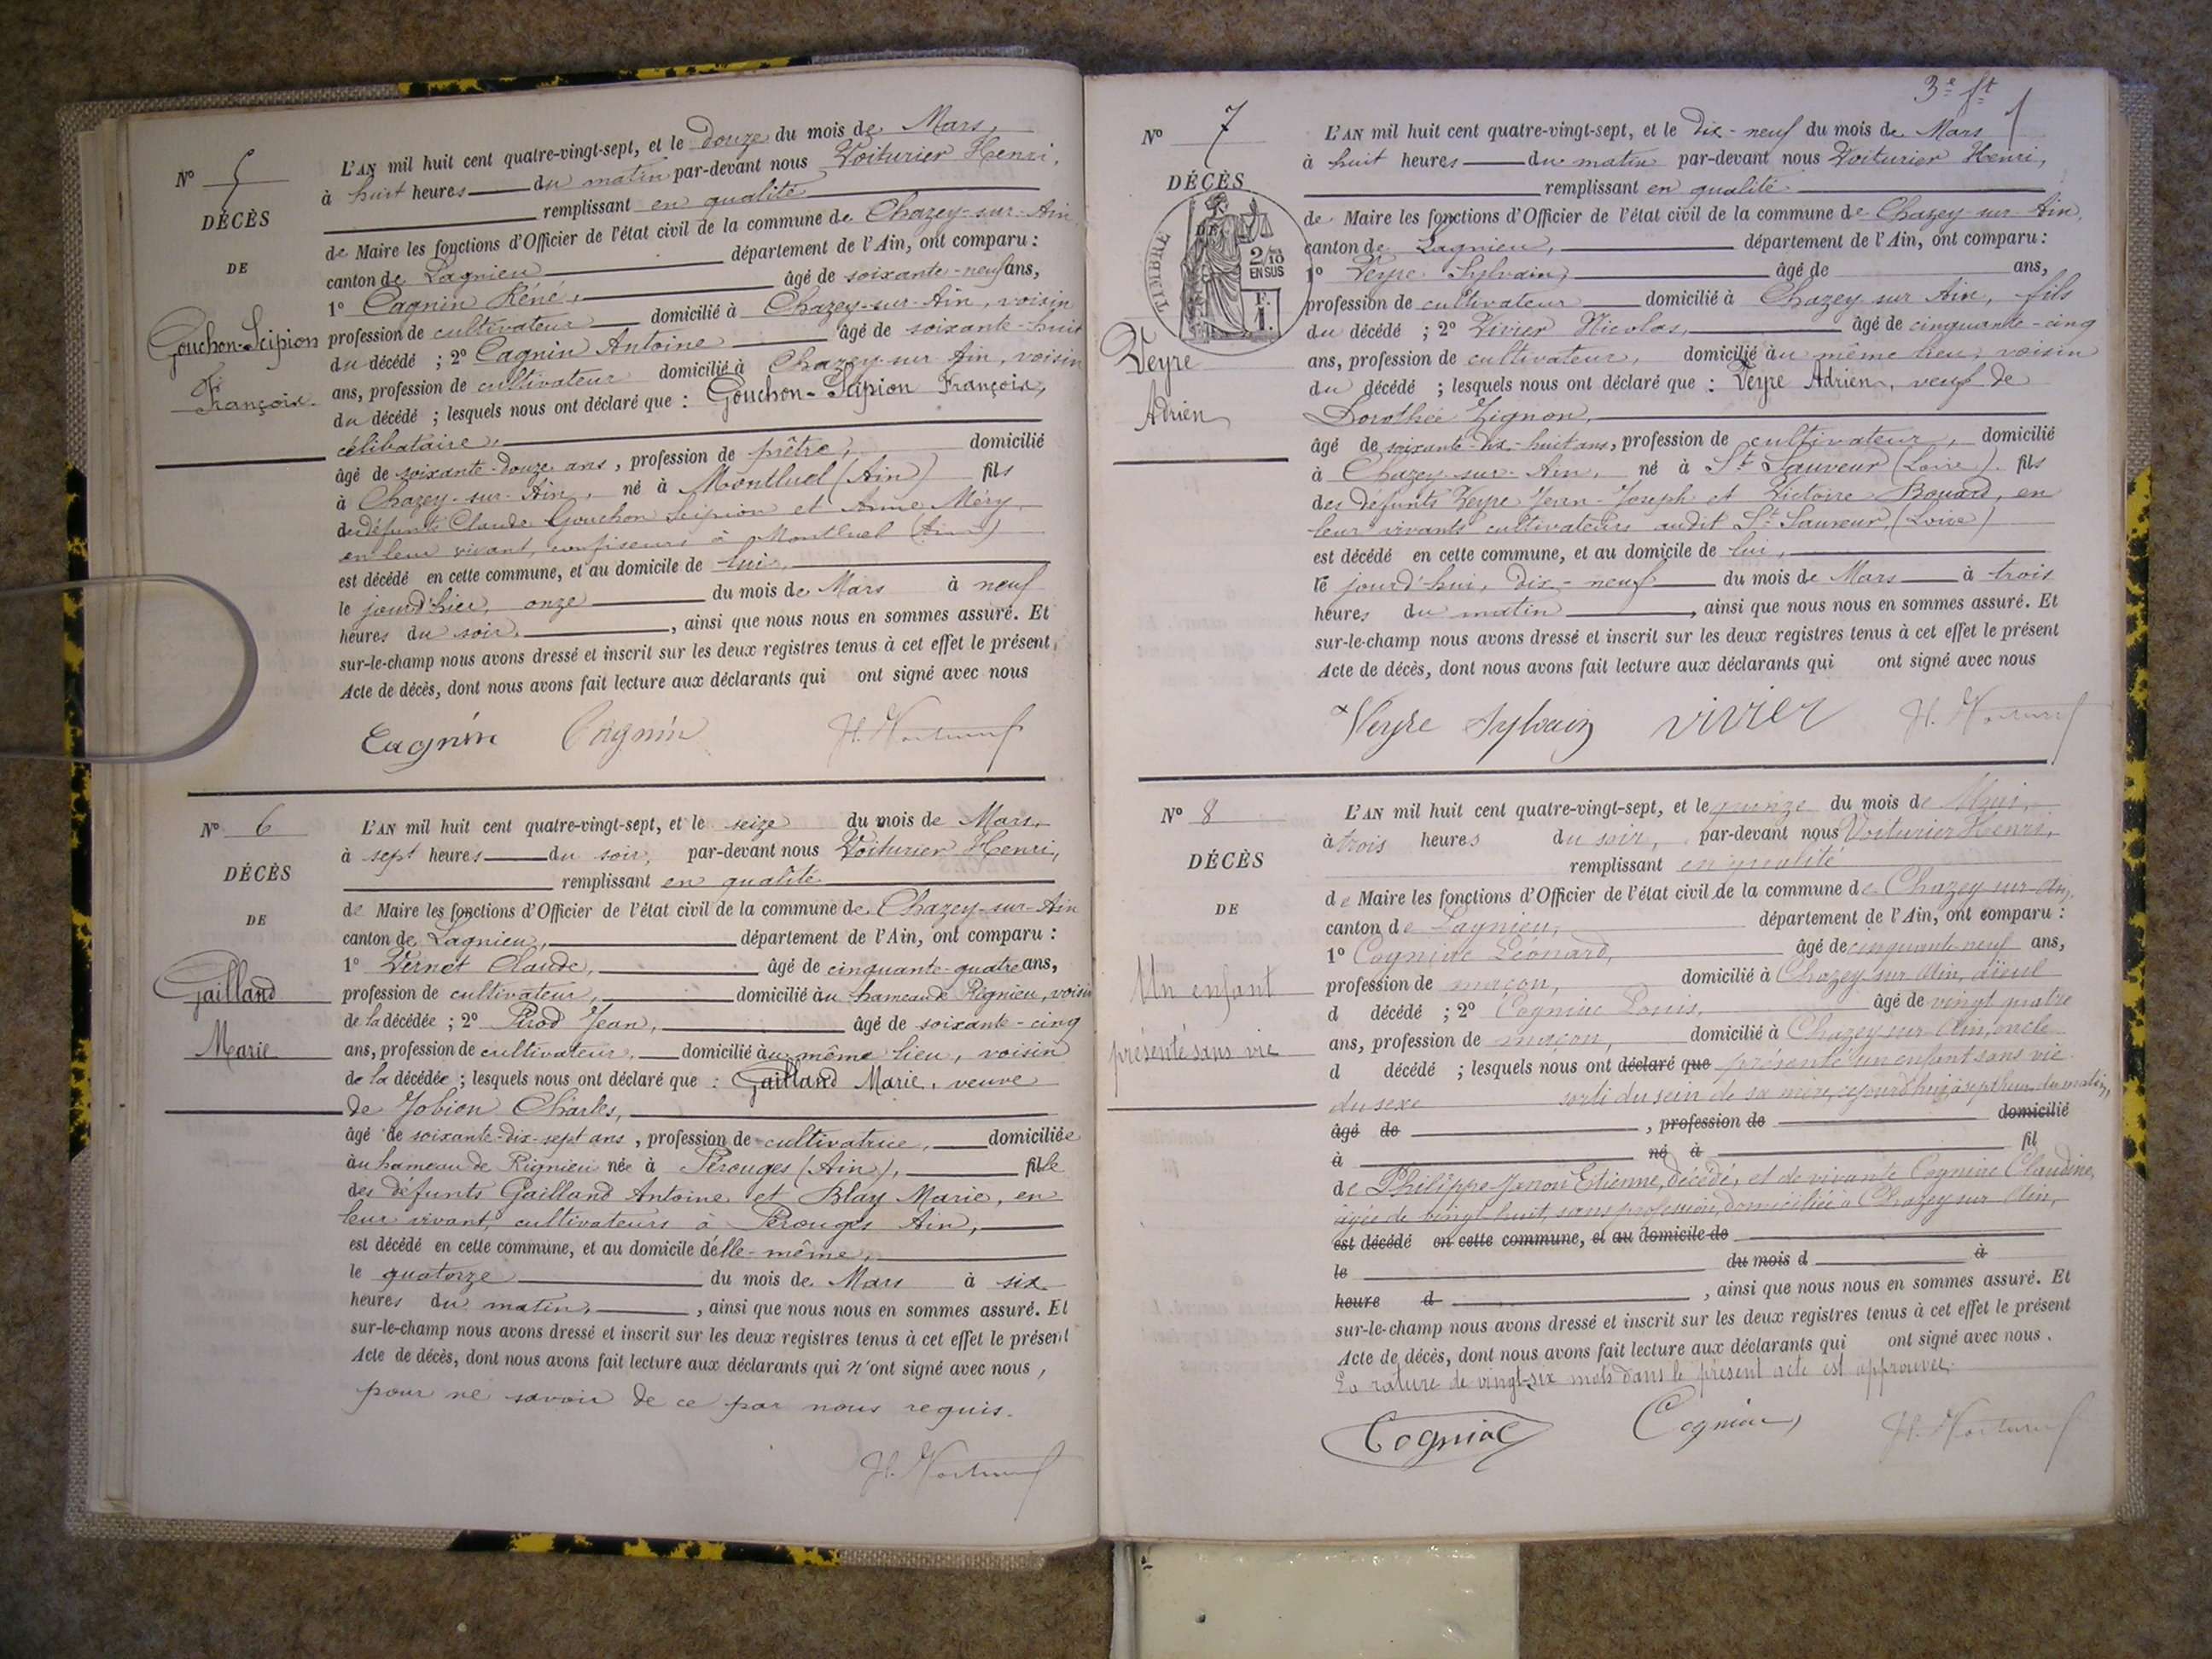 N° 5
DÉCÈS
DE
Gouchon-Scipion
François
L'AN mil huit cent quatre-vingt-sept, et le douze du mois de Mars,
à huit heures du matin par-devant nous Voiturier Henri,
remplissant en qualité
de Maire les fonctions d'Officier de l'état civil de la commune de Chazey-sur-Ain
canton de Lagnieu département de l'Ain, ont comparu :
1° Cagnin Réné, âgé de soixante-neuf ans,
profession de cultivateur domicilié à Chazey-sur-Ain, voisin
du décédé ; 2° Cagnin Antoine âgé de soixante-huit
ans, profession de cultivateur domicilié à Chazey-sur-Ain, voisin
du décédé ; lesquels nous ont déclaré que : Gouchon-Scipion François,
célibataire,
âgé de soixante-douze ans, profession de prêtre, domicilié
à Chazey-sur-Ain, né à Montluel (Ain) fils
de défunts Claude Gouchon Scipion et Anne Méry
en leur vivant, confiseurs à Montluel (Ain)
est décédé en cette commune, et au domicile de lui,
le jourd'hier, onze du mois de Mars à neuf
heures du soir, ainsi que nous nous en sommes assuré. Et
sur-le-champ nous avons dressé et inscrit sur les deux registres tenus à cet effet le présent
Acte de décès, dont nous avons fait lecture aux déclarants qui ont signé avec nous
Cagnin Cagnin
N° 6
DÉCÈS
DE
Gailland
Marie
L'AN mil huit cent quatre-vingt-sept, et le seize du mois de Mars,
à sept heures du soir, par-devant nous Voiturier Henri,
remplissant en qualité
de Maire les fonctions d'Officier de l'état civil de la commune de Chazey-sur-Ain
canton de Lagnieu, département de l'Ain, ont comparu :
1° Vernet Claude, âgé de cinquante-quatre ans,
profession de cultivateur, domicilié au hameau de Rignieu, voisin
de la décédée ; 2° Pirod Jean, âgé de soixante-cinq
ans, profession de cultivateur, domicilié au même lieu, voisin
de la décédée ; lesquels nous ont déclaré que : Gailland Marie, veuve
de Jobion Charles,
âgé de soixante-dix-sept ans, profession de cultivatrice, domiciliée
au hameau de Rignieu née à Pérouges (Ain), fille
des défunts Gailland Antoine et Blay Marie, en
leur vivant, cultivateurs à Pérouges Ain,
est décédé en cette commune, et au domicile d'elle-même,
le quatorze du mois de Mars à six
heures du matin, ainsi que nous nous en sommes assuré. Et
sur-le-champ nous avons dressé et inscrit sur les deux registres tenus à cet effet le présent
Acte de décès, dont nous avons fait lecture aux déclarants qui n'ont signé avec nous,
pour ne savoir de ce par nous requis.
3e ft
N° 7
DÉCÈS
TIMBRE
2/10
EN SUS
F.
1.
Veyre
Adrien
L'AN mil huit cent quatre-vingt-sept, et le Dix-neuf du mois de Mars
à huit heures du matin par-devant nous Voiturier Henri,
remplissant en qualité
de Maire les fonctions d'Officier de l'état civil de la commune de Chazey-sur-Ain,
canton de Lagnieu, département de l'Ain, ont comparu :
1° Veyre Sylvain, âgé de ans,
profession de cultivateur domicilié à Chazey sur Ain, fils
du décédé ; 2° Vivier Nicolas, âgé de cinquante-cinq
ans, profession de cultivateur, domicilié au même lieu, voisin
du décédé ; lesquels nous ont déclaré que : Veyre Adrien, veuf de
Dorothée Zignon,
âgé de soixante-dix-huit ans, profession de cultivateur, domicilié
à Chazey-sur-Ain, né à St Sauveur (Loire) fils
des défunts Veyre Jean-Joseph et Victoire Bouard, en
leur vivants cultivateurs audit St Sauveur, (Loire)
est décédé en cette commune, et au domicile de lui,
le jourd'hui, Dix-neuf du mois de Mars à trois
heures du matin, ainsi que nous nous en sommes assuré. Et
sur-le-champ nous avons dressé et inscrit sur les deux registres tenus à cet effet le présent
Acte de décès, dont nous avons fait lecture aux déclarants qui ont signé avec nous
Veyre Sylvain vivier
N° 8
DÉCÈS
DE
Un enfant
présenté sans vie
L'AN mil huit cent quatre-vingt-sept, et le quinze du mois de Mai,
à trois heures du soir, par-devant nous Voiturier Henri,
remplissant en qualité
de Maire les fonctions d'Officier de l'état civil de la commune de Chazey sur Ain,
canton de Lagnieu, département de l'Ain, ont comparu :
1° Cogniac Léonard, âgé de cinquante neuf ans,
profession de maçon, domicilié à Chazey sur Ain, aïeul
d décédé ; 2° Cogniac Louis, âgé de vingt quatre
ans, profession de maçon, domicilié à Chazey sur Ain, oncle
d décédé ; lesquels nous ont déclaré que présenté un enfant sans vie
du sexe sorti du sein de sa mère, cejourd'hui, à sept heures du matin,
âgé de , profession de domicilié
à né à fil
de Philippe Janon Etienne, décédé, et de vivante Cogniac Claudine,
âgée de vingt huit, sans profession, domiciliée à Chazey sur Ain,
est décédé en cette commune, et au domicile de
le du mois d à
heure d , ainsi que nous nous en sommes assuré. Et
sur-le-champ nous avons dressé et inscrit sur les deux registres tenus à cet effet le présent
Acte de décès, dont nous avons fait lecture aux déclarants qui ont signé avec nous.
La rature de vingt-six mots dans le présent acte est approuvée.
Cogniac Cogniac